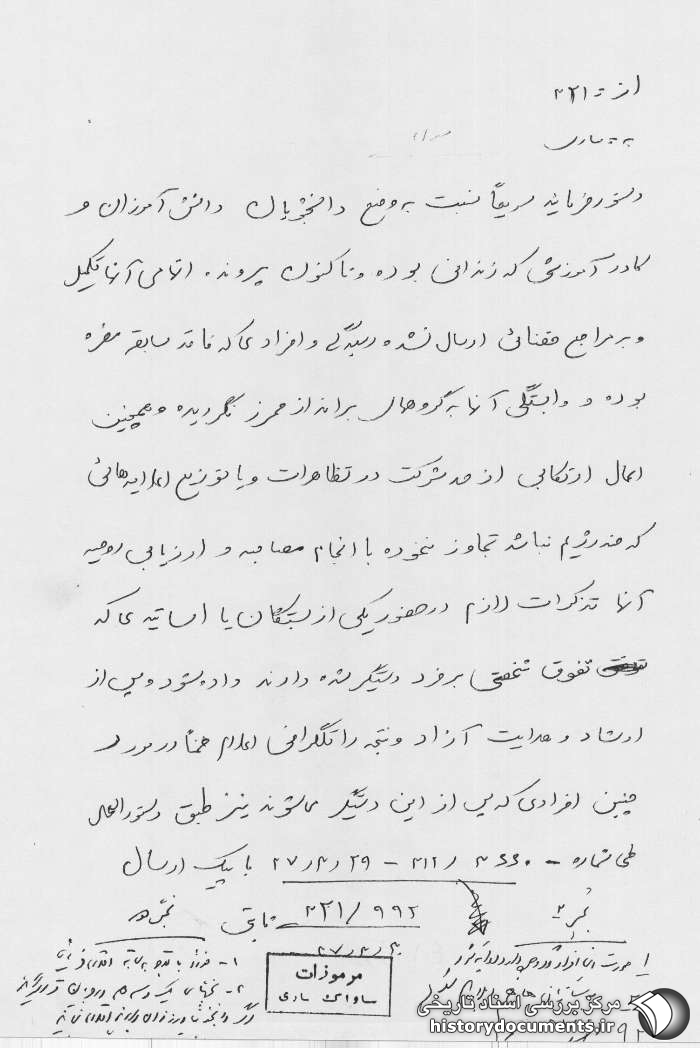 از - ۳۲۱
به - ساری
دستور فرمائید سریعاً نسبت به وضع دانشجویان دانش آموزان و
کادر آموزشی که زندانی بوده و تاکنون پرونده اتهامی آنها تکمیل
و به مراجع قضائی ارسال نشده رسیدگی و افرادی که فاقد سابقه مضره
بوده و وابستگی آنها به گروههای برانداز محرز نگردیده و همچنین
اعمال ارتکابی از حد شرکت در تظاهرات و یا توزیع اعلامیه هائی
که ضد رژیم نباشد تجاوز ننموده با انجام مصاحبه و ارزیابی روحیه
آنها تذکرات لازم در حضور یکی از بستگان یا اساتیدی که
نفوق شخصی بر فرد دستگیر شده دارند داده شود و پس از
ارشاد و هدایت آزاد و نتیجه را تلگرافی اعلام ضمناً در مورد
چنین افرادی که پس از این دستگیر میشوند نیز طبق دستورالعمل
طی شماره - ۳۶۶۰ / ۳۱۲ - ۲۹ ر ۳ ر ۳۷ با پیک ارسال
۹۹۲ / ۳۲۱ ثابتی
مرموزات
ساواک ساری
مرکز بررسی اسناد تاریخی
historydocuments.ir